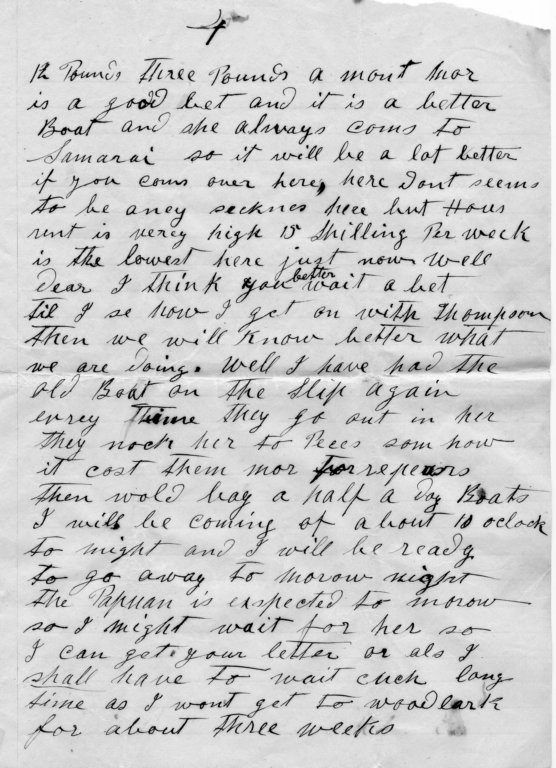 4
12 Pounds three Pounds a mont mor
is a good bet and it is a better
Boat and she always coms to
Samarai so it will be a lot better
if you coms over here, here dont seems
to be aney secknes heer but Hous
rent is verey high 15 Shilling Per week
is the lowest here just now well
dear I think you better wait a bet
til I se how I get on with Thompson
then we will know better what
we are doing. well I have had the
old Boat on the Slip again
evrey thime they go out in her
they nock her to Peces som how
it cost them mor for repears
then wold bay a half a Doz Boats
I will be coming of about 10 oclock
to night and I will be ready
to go away to morow night
the Papuan is exspected to morow
so I might wait for her so
I can get your letter or als I
shall have to wait long
time as I wont get to woodlark
for about three weeks